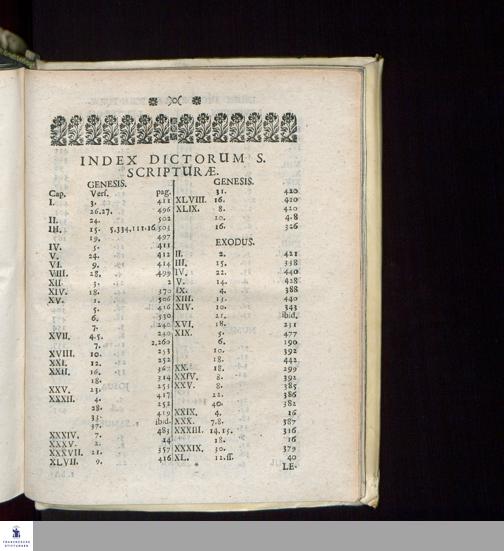 INDEX DICTORUM S.
SCRIPTURÆ.
GENESIS.
Cap. Vers. pag.
I. 3. 411
26.27. 496
II. 24. 502
III. 15. 5,334,111.16,505
19. 497
IV. 5. 411
V. 24. 412
VI. 9. 414
VIII. 28. 499
XII. 3. 2
XIV. 18. 370
XV. 1. 506
5. 416
6. 530
7. 240
XVII. 4.5. 240
7. 2,260
XVIII. 10. 253
XXI. 12. 252
XXII. 16. 362
18. 314
XXV. 23. 251
XXXII. 4. 417
28. 252
33. 419
37. ibid.
XXXIV. 7. 483
XXXV. 2. 14
XXXVII. 21. 357
XLVII. 9. 416
GENESIS.
31. 420
XLVIII. 16. 420
XLIX. 8. 420
10. 4.8
16. 326
EXODUS.
II. 2. 421
III. 15. 338
IV. 22. 440
V. 14. 428
IX. 4. 388
XIII. 15. 440
XIV. 10. 343
21. ibid.
XVI. 18. 251
XIX. 5. 477
6. 190
10. 392
18. 442
XX. 18. 299
XXIV. 8. 392
XXV. 8. 385
22. 386
40. 382
XXIX. 4. 16
XXX. 7.8. 387
XXXIII. 14.15. 316
18. 16
XXXIX. 30. 379
XL. 12.ff. 40
LE-
FRANCKESCHE
STIFTUNGEN